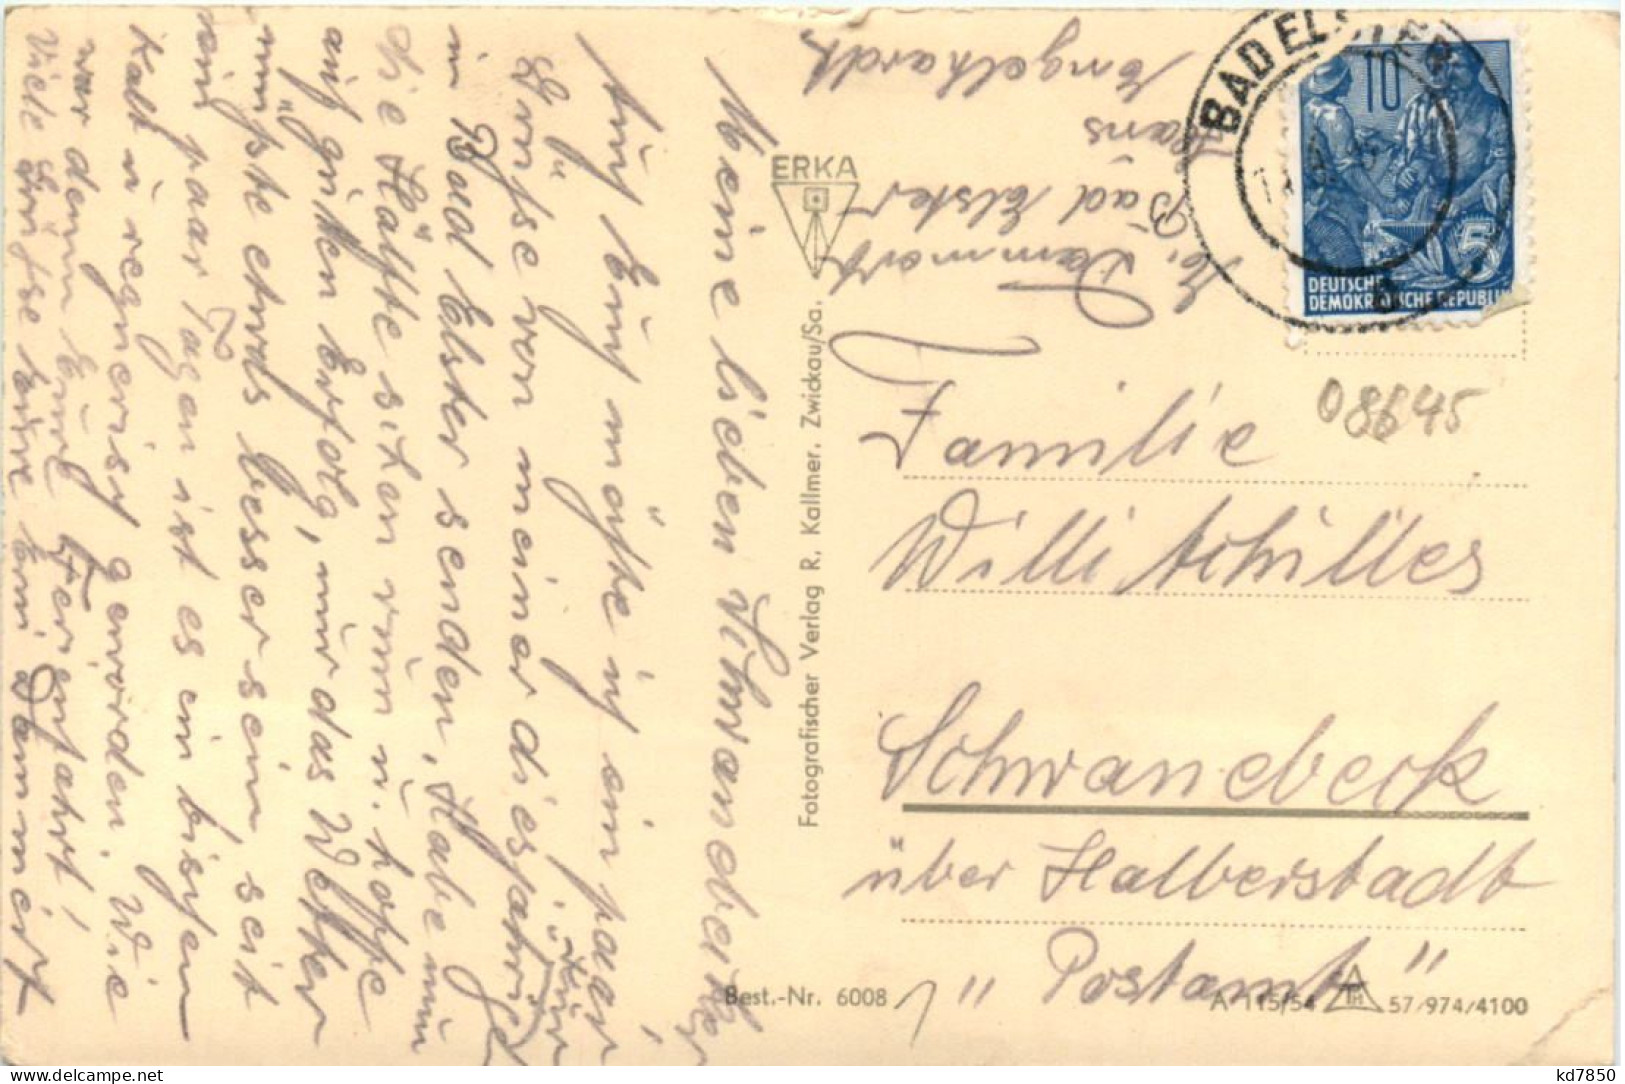 Meine lieben Schwanebecker!
Auch Euch möchte ich ein paar
Grüße von meiner diesjähr. Kur
in Bad Elster senden. Habe nun
die Hälfte schon rum u. hoffe
auf guten Erfolg, nur das Wetter
müßte etwas besser sein, seit
ein paar Tagen ist es ein bischen
kalt u. regnerisch geworden. Wie
war denn Eure Ferienfahrt?
Viele Grüsse Eure Emmi Dammert
ERKA
Fotografischer Verlag R. Kallmer. Zwickau/Sa.
Best.-Nr. 6008
Bad Elster
Haus
Engelhardt
BAD ELSTER
10
5
DEUTSCHE
DEMOKRATISCHE REPUBLIK
08645
Familie
Willi Achilles
Schwanebeck
über Halberstadt
"Postamt"
A 115/54
57/974/4100
kd7850